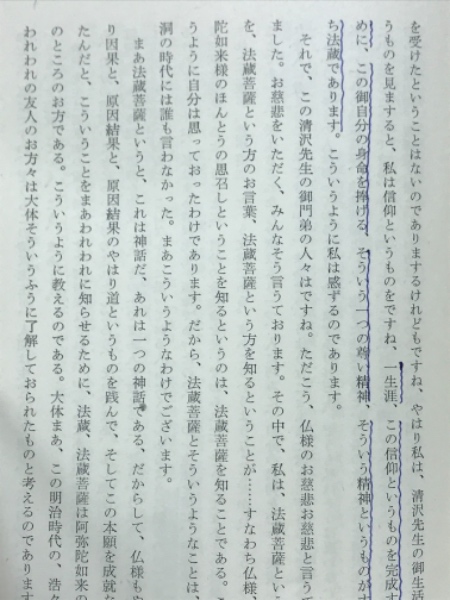 を受けたということはないのでありまするけれどもですね、やはり私は、清沢先生の御生活
うものを見ますると、私は信仰というものをですね、一生涯、この信仰というものを完成
めに、この御自分の身命を捧げる、そういう一つの尊い精神、そういう精神というものがす
ち法蔵であります。こういうように私は感ずるのであります。
それで、この清沢先生の御門弟の人々はですね。ただこう、仏様のお慈悲お慈悲と言うて
ました。お慈悲をいただく、みんなそう言うております。その中で、私は、法蔵菩薩とい
を、法蔵菩薩という方のお言葉、法蔵菩薩という方を知るということが……すなわち仏様、
陀如来様のほんとうの思召しということを知るというのは、法蔵菩薩を知ることである。こ
うように自分は思っておったわけであります。だから、法蔵菩薩とそういうようなことは、
洞の時代には誰も言わなかった。まあこういうようなわけでございます。
まあ法蔵菩薩というと、これは神話だ、あれは一つの神話である、だからして、仏様もや
り因果と、原因結果と、原因結果のやはり道というものを践んで、そしてこの本願を成就
たんだと、こういうことをまあわれわれに知らせるために、法蔵、法蔵菩薩は阿弥陀如来の
のところのお方である。こういうように教えるのである。大体まあ、この明治時代の、浩々
われわれの友人のお方々は大体そういうふうに了解しておられたものと考えるのであります